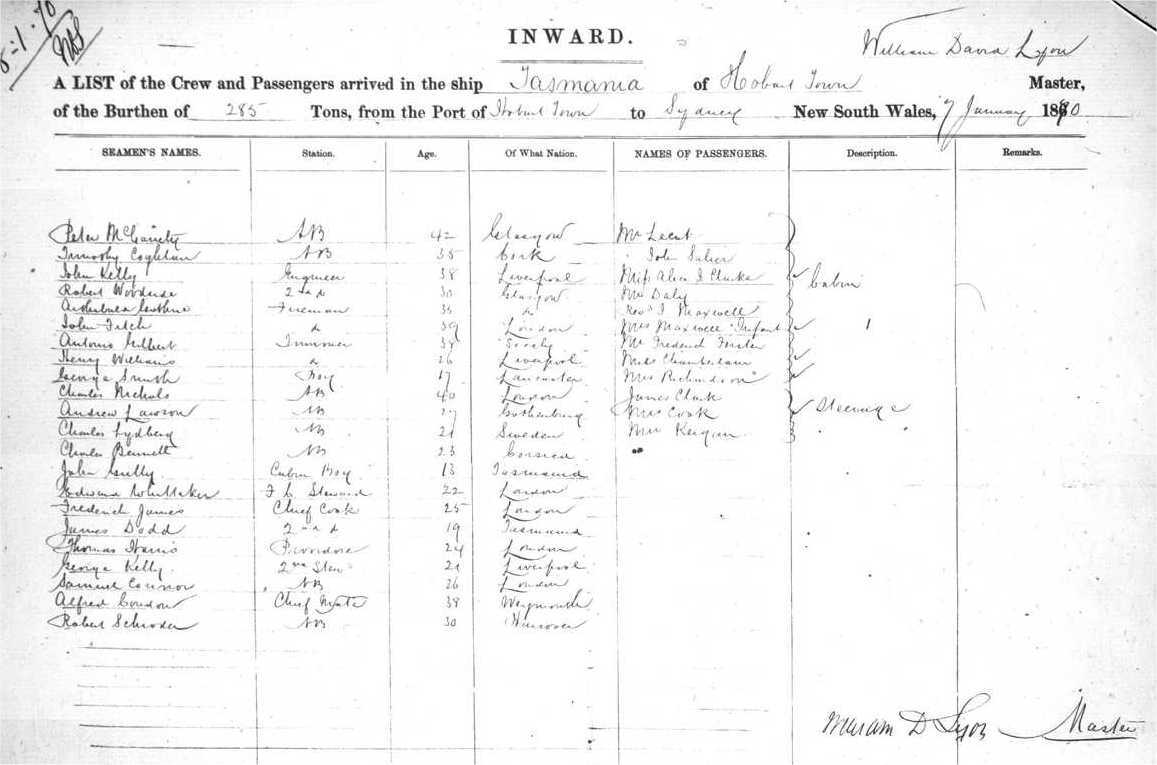 8-1-70
INWARD.
William David Lyon
A LIST of the Crew and Passengers arrived in the ship Tasmania of Hobart Town Master,
of the Burthen of 285 Tons, from the Port of Hobart Town to Sydney New South Wales, 7 January 1870
SEAMEN'S NAMES. Station. Age. Of What Nation. NAMES OF PASSENGERS. Description. Remarks.
Peter AB 42 Glasgow Mr Lecat
Timothy Coghlan AB 38 Cork John
John Kelly Engineer 38 Liverpool Miss Alice I Clarke Cabin
Robert Woodside 2nd d 30 Glasgow Mr Daly
Fireman 35 d Revd J Maxwell
John Fitch d 39 London Mrs Maxwell Infant 1
Antonio Gilbert Trimmer Mr Frederick Forster
Henry Williams d 26 Liverpool Miss Chamberlain
George Smith Boy 17 Lancaster Mrs Richardson
Charles Nichols AB 40 London James Clark
Andrew Lawson AB Gothenburg Mrs Cook Steerage
Charles Lydberg AB 21 Sweden Mrs
Charles Bennett AB 23 Corsica
John Gully Cabin Boy 13 Tasmania
Edward Whittaker F C Steward 22 London
Frederick James Chief Cook 25 London
James Dodd 2nd d 19 Tasmania
Thomas Harris Providore 24 London
George Kelly 2nd Stewd 21 Liverpool
Samuel Connor AB 26 London
Alfred Condon Chief Mate 38 Weymouth
Robert Schroder AB 30 Hanover
William D Lyon Master